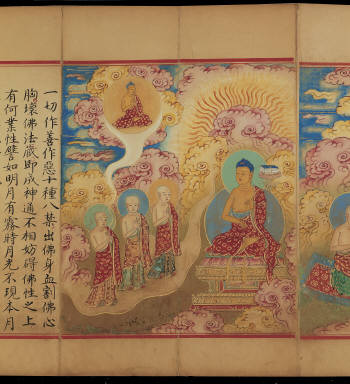 一切作善作惡十種八禁出佛身血割佛心
胸壞佛法嚴即成神通不相妨碍佛性之上
有何業性譬如明月有霧時月光不現本月